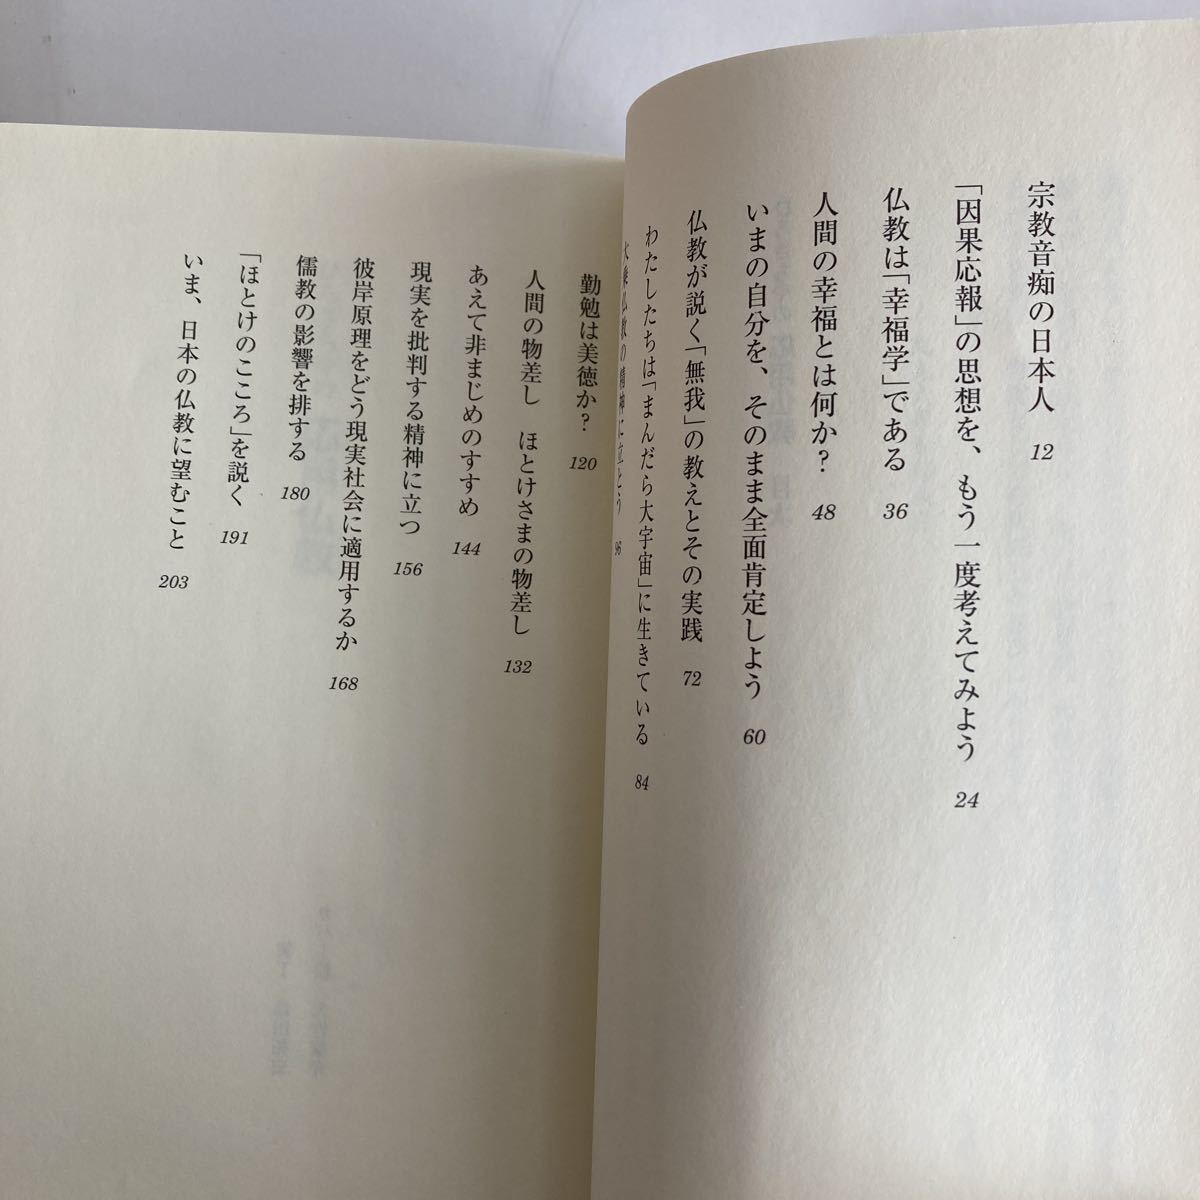 宗教音痴の日本人 12
「因果応報」の思想を、もう一度考えてみよう 24
仏教は「幸福学」である 36
人間の幸福とは何か? 48
いまの自分を、そのまま全面肯定しよう 60
仏教が説く「無我」の教えとその実践 72
わたしたちは「まんだら大宇宙」に生きている 84
大乗仏教の精神に立とう 96
勤勉は美徳か? 120
人間の物差し ほとけさまの物差し 132
あえて非まじめのすすめ 144
現実を批判する精神に立つ 156
彼岸原理をどう現実社会に適用するか 168
儒教の影響を排する 180
「ほとけのこころ」を説く 191
いま、日本の仏教に望むこと 203